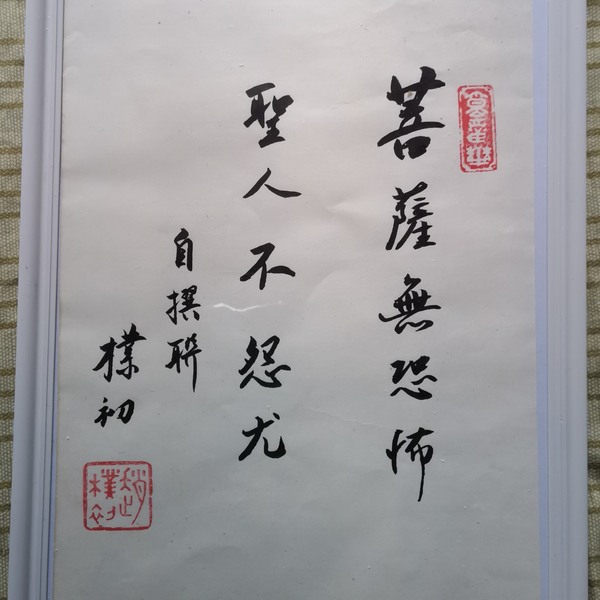 菩薩無恐怖
聖人不怨尤
自撰聯
樸初
趙樸初